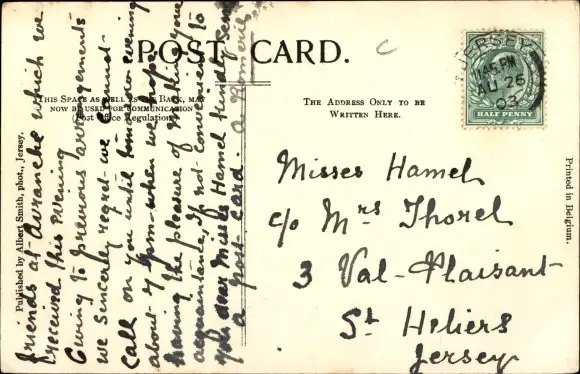 POST CARD.
THIS SPACE AS WELL AS THE BACK, MAY
NOW BE USED FOR COMMUNICATION
(Post Office Regulation)
THE ADDRESS ONLY TO BE
WRITTEN HERE.
friends at Avranche which we
received this evening
Owing to previous arrangements
we sincerely regret we cannot
call on you until tomorrow evening
about 7 pm - when we hope
having the pleasure of making your
acquaintance, If not convenient to
you dear Misses Hamel kindly send
a post card. A Romeril
Misses Hamel
c/o Mrs Thorel
3 Val-Plaisant
St Heliers
Jersey
JERSEY
PM
AU 26
03
HALF PENNY
C
Published by Albert Smith, phot., Jersey.
Printed in Belgium.